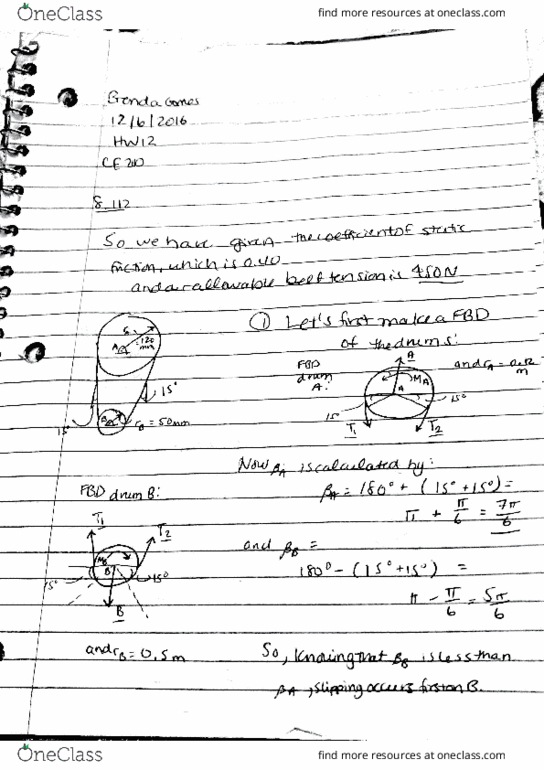 OneClass
find more resources at oneclass.com
Brenda Gomes
12/6/2016
HW12
CE 210
8.112
So we have given the coefficient of static
friction, which is 0.40
and our allowable belt tension is 450N
① Let's first make a FBD
of the drums:
=120
mm
15°
15°
rB = 50mm
FBD
drum
A:
A
MA
A
15°
15°
T1
T2
and rA = 0.12
m
Now βA is calculated by:
βA = 180° + (15° + 15°) =
π + π/6 = 7π/6
FBD drum B:
T1
T2
MB
B
15°
15°
B
and rB = 0.5m
and βB =
180° - (15° + 15°) =
π - π/6 = 5π/6
So, knowing that βB is less than
βA, slipping occurs first on B.
OneClass
find more resources at oneclass.com